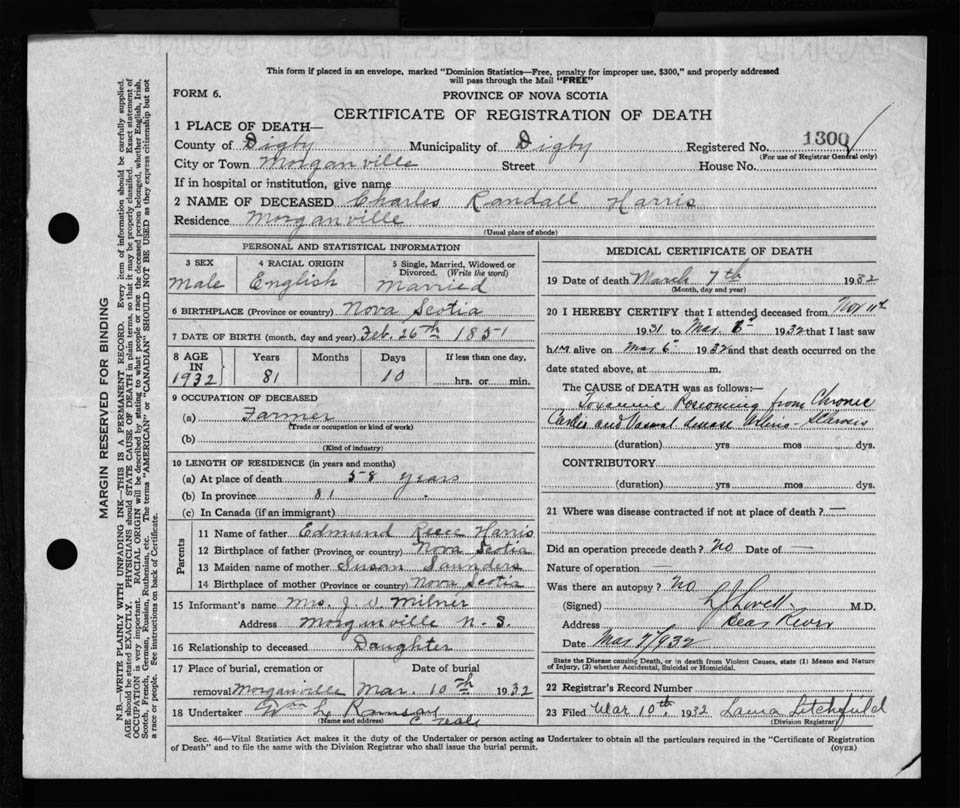 This form if placed in an envelope, marked "Dominion Statistics—Free, penalty for improper use, $300," and properly addressed
will pass through the Mail "FREE"
FORM 6.
PROVINCE OF NOVA SCOTIA
CERTIFICATE OF REGISTRATION OF DEATH
1 PLACE OF DEATH—
County of Digby Municipality of Digby Registered No. 1300
(For use of Registrar General only)
City or Town Morganville Street House No.
If in hospital or institution, give name
2 NAME OF DECEASED Charles Randall Harris
Residence Morganville
(Usual place of abode)
PERSONAL AND STATISTICAL INFORMATION
3 SEX 4 RACIAL ORIGIN 5 Single, Married, Widowed or Divorced. (Write the word)
Male English Married
6 BIRTHPLACE (Province or country) Nova Scotia
7 DATE OF BIRTH (month, day and year) Feb. 26th 1851
8 AGE IN 1932 Years Months Days If less than one day,
81 10 hrs. or min.
9 OCCUPATION OF DECEASED
(a) Farmer
(Trade or occupation or kind of work)
(b)
(Kind of industry)
10 LENGTH OF RESIDENCE (in years and months)
(a) At place of death 58 years
(b) In province 81
(c) In Canada (if an immigrant)
Parents
11 Name of father Edmund Reece Harris
12 Birthplace of father (Province or country) Nova Scotia
13 Maiden name of mother Susan Saunders
14 Birthplace of mother (Province or country) Nova Scotia
15 Informant's name Mrs. J. W. Milner
Address Morganville N-S.
16 Relationship to deceased Daughter
17 Place of burial, cremation or removal Morganville Date of burial Mar. 10th 1932
18 Undertaker Wm L Ramsay
(Name and address)
MEDICAL CERTIFICATE OF DEATH
19 Date of death March 7th 1932
(Month, day and year)
20 I HEREBY CERTIFY that I attended deceased from Nov 11th
1931 to Mar 1932 that I last saw
him alive on Mar 6th 1932 and that death occurred on the
date stated above, at m.
The CAUSE of DEATH was as follows:—
Toxaemic Poisoning from Chronic
Cardio and Vascual disease Arterio-Sclerosis
(duration) yrs mos dys.
CONTRIBUTORY
(duration) yrs mos dys.
21 Where was disease contracted if not at place of death? —
Did an operation precede death? No Date of —
Nature of operation —
Was there an autopsy? No
(Signed) Lovett M.D.
Address Bear River
Date Mar 7/1932
State the Disease causing Death, or in death from Violent Causes, state (1) Means and Nature
of Injury, (2) whether Accidental, Suicidal or Homicidal.
22 Registrar's Record Number
23 Filed Mar 10th, 1932 Laura Litchfield
(Division Registrar)
Sec. 46—Vital Statistics Act makes it the duty of the Undertaker or person acting as Undertaker to obtain all the particulars required in the "Certificate of Registration
of Death" and to file the same with the Division Registrar who shall issue the burial permit.
(OVER)
MARGIN RESERVED FOR BINDING
N.B.—WRITE PLAINLY WITH UNFADING INK—THIS IS A PERMANENT RECORD. Every item of information should be carefully supplied.
AGE should be stated EXACTLY. PHYSICIANS should STATE CAUSE OF DEATH in plain terms, so that it may be properly classified. Exact statement of
OCCUPATION is very important. RACIAL ORIGIN will be described by stating to what people or race the deceased person belonged, whether English, Irish,
Scotch, French, German, Russian, Ruthenian, etc. The terms "AMERICAN" or "CANADIAN" SHOULD NOT BE USED as they express citizenship but not
a race or people. See instructions on back of Certificate.